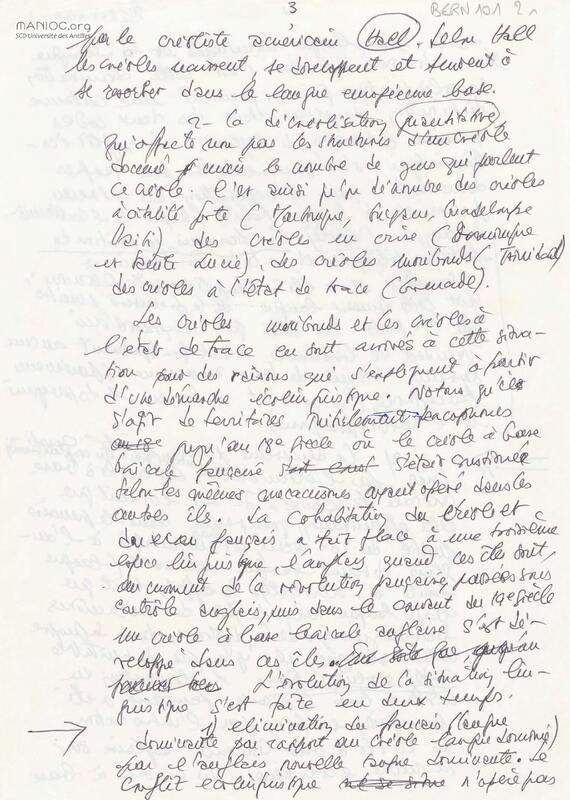 MANIOC.org
SCD Université des Antilles
3
BERN 101 2
par le créoliste américain Hall. Selon Hall
les créoles naissent, se développent et tendent à
se résorber dans la langue européenne base.
2- la décréolisation quantitative
qui affecte non pas les structures d'un créole
donné mais le nombre de gens qui parlent
ce créole. C'est ainsi qu'on dénombre des créoles
à vitalité forte (Martinique, Guyane, Guadeloupe
Haïti), des créoles en crise (Dominique
et Sainte Lucie), des créoles moribonds (Trinidad)
des créoles à l'état de trace (Grenade).
Les créoles moribonds et les créoles à
l'état de trace en sont arrivés à cette situa-
tion pour des raisons qui s'expliquent à partir
d'une démarche écolinguistique. Notons qu'il
s'agit de territoires initialement francophones
jusqu'au 18e siècle où le créole à base
lexicale française s'était
selon les mêmes mécanismes ayant opéré dans les
autres îles. La cohabitation du créole et
du français a fait place à une troisième
espèce linguistique, l'anglais, quand ces îles sont,
au moment de la révolution française, passées sous
contrôle anglais, puis dans le courant du 19e siècle
un créole à base lexicale anglaise s'est dé-
veloppé dans ces îles.
L'évolution de la situation lin-
guistique s'est faite en deux temps.
1) élimination du français (langue
dominante par rapport au créole langue dominée)
par l'anglais nouvelle langue dominante. Le
conflit écolinguistique n'opère pas